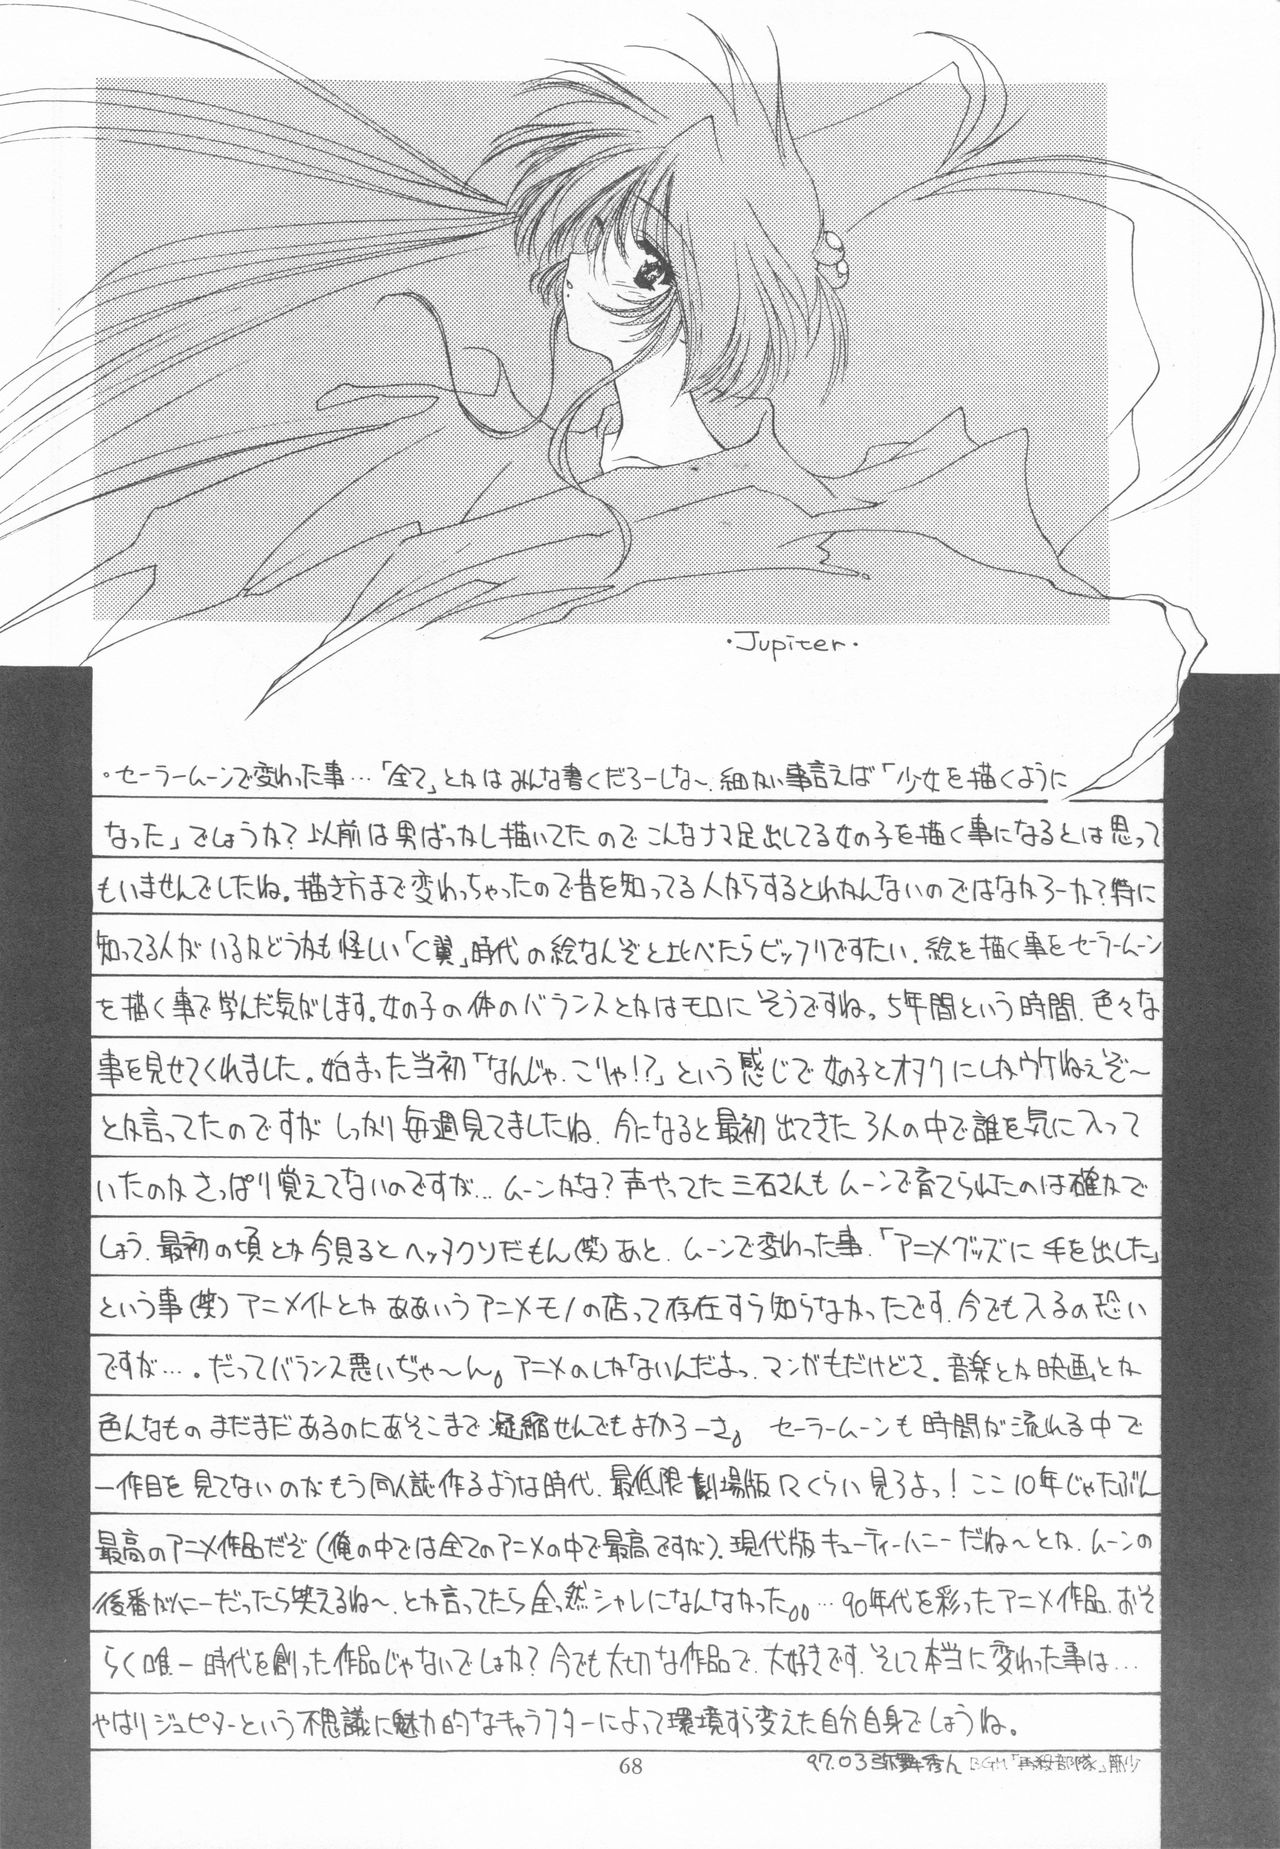 ・Jupiter・
・セーラームーンで変わった事…「全て」とかはみんな書くだろーしな〜、細かい事言えば「少女を描くように
なった」でしょうか？以前は男ばっかし描いてたのでこんなナマ足出してる女の子を描く事になるとは思って
もいませんでしたね。描き方まで変わっちゃったので昔を知ってる人からするとわかんないのではなかろーか？特に
知ってる人がいるかどうかも怪しい「C翼」時代の絵なんぞと比べたらビックリですたい、絵を描く事をセーラームーン
を描く事で学んだ気がします。女の子の体のバランスとかはモロにそうですねっ5年間という時間、色々な
事を見せてくれました。始まった当初「なんじゃ、こりゃ!?」という感じで女の子とオタクにしかウケねぇぞ〜
とか言ってたのですがしっかり毎週見てましたね、今になると最初出てきた3人の中で誰を気に入って
いたのかさっぱり覚えてないのですが…ムーンかな？声やってた三石さんもムーンで育てられたのは確かで
しょう、最初の頃とか今見るとヘッタクソだもん(笑)あと、ムーンで変わった事、「アニメグッズに手を出した」
という事(笑)アニメイトとかああいうアニメモノの店って存在すら知らなかったです、今でも入るの恐い
ですが…。だってバランス悪いぢゃ〜ん。アニメのしかないんだよっ、マンガもだけどさ。音楽とか映画とか
色んなものまだまだあるのにあそこまで凝縮せんでもよかろーさ。 セーラームーンも時間が流れる中で
一作目を見てないのがもう同人誌作るような時代、最低限劇場版Rくらい見ろよっ！ここ10年じゃたぶん
最高のアニメ作品だぞ(俺の中では全てのアニメの中で最高ですが)、現代版キューティーハニーだね〜とか、ムーンの
後番がハニーだったら笑えるね〜、とか言ってたら全っ然シャレになんなかった。。…90年代を彩ったアニメ作品、おそ
らく唯一時代を創った作品じゃないでしょか？今でも大切な作品で、大好きです、そして本当に変わった事は…
やはりジュピターという不思議に魅力的なキャラクターによって環境すら変えた自分自身でしょうね。
68
97.03 弥舞秀人 BGM「再殺部隊」筋少